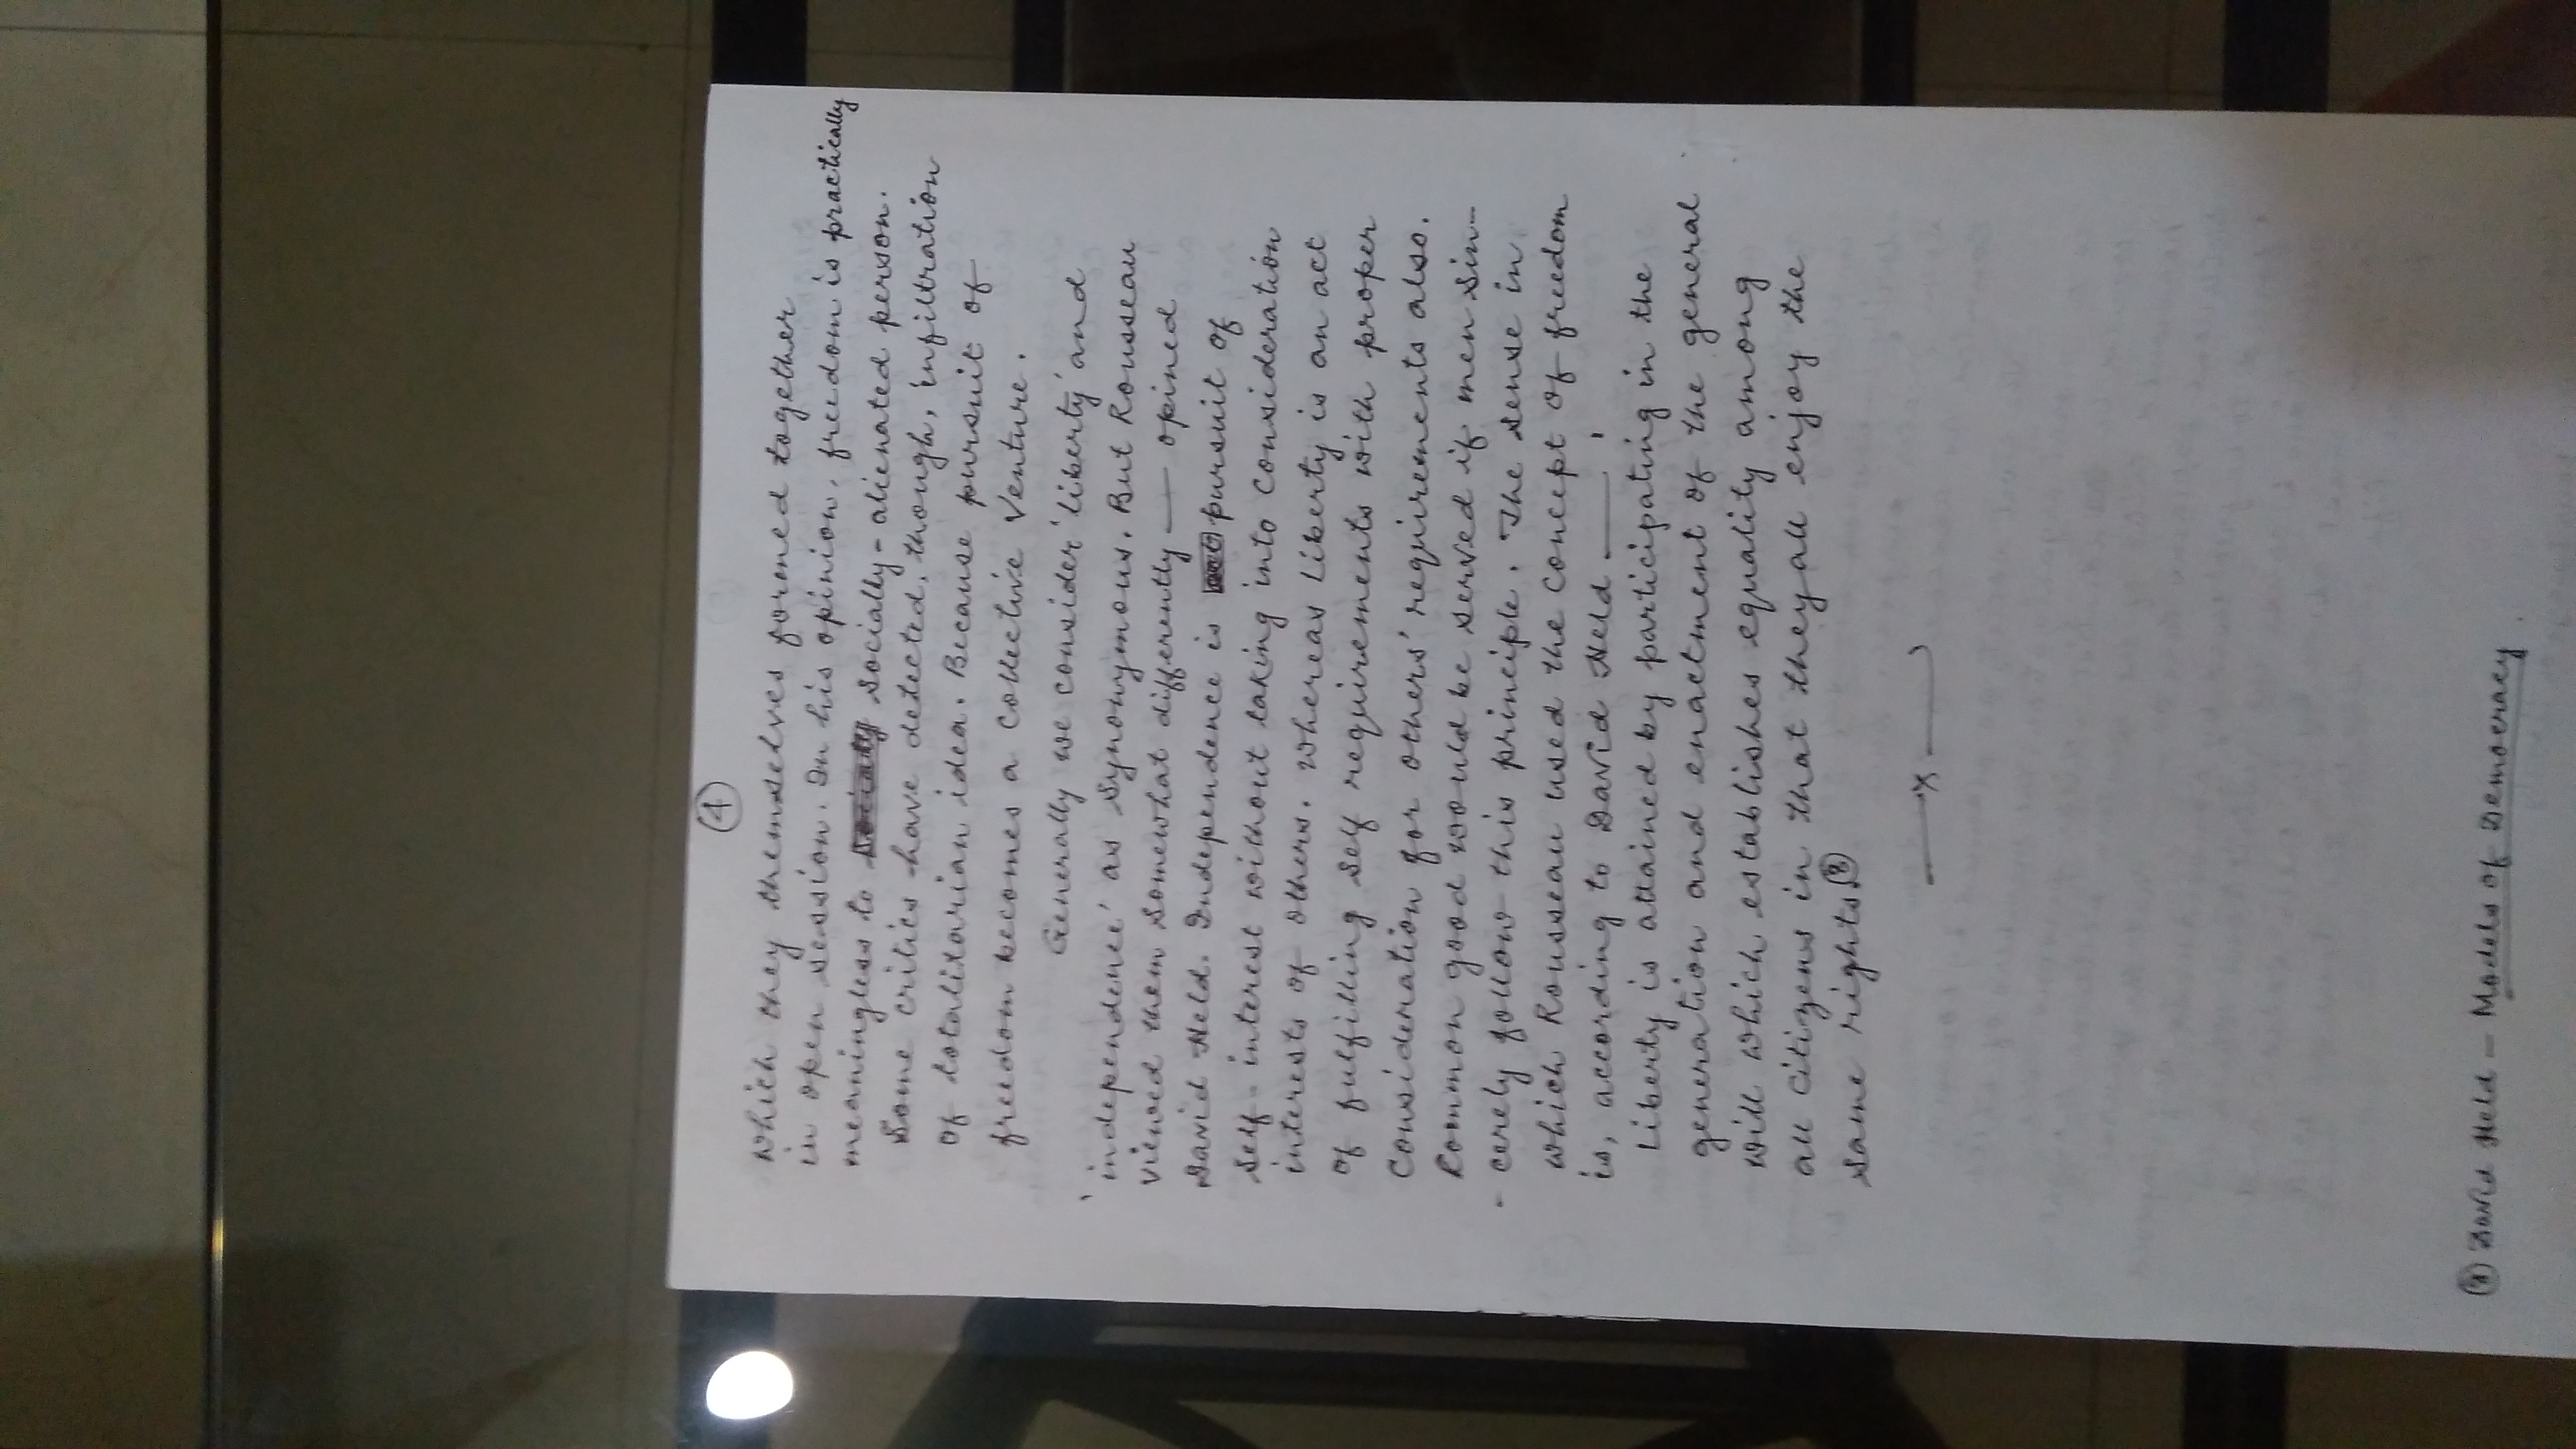 ④
which they themselves formed together
in open session. In his opinion, freedom is practically
meaningless to socially - alienated person.
Some critics have detected, though, infiltration
of totalitarian idea. Because pursuit of
freedom becomes a collective venture.
Generally we consider 'liberty' and
'independence' as synonymous. But Rousseau
viewed them somewhat differently — opined
David Held. Independence is pursuit of
self-interest without taking into consideration
interests of others. Whereas liberty is an act
of fulfilling self requirements with proper
consideration for others' requirements also.
Common good would be served if men sin-
- cerely follow this principle. The sense in
which Rousseau used the concept of freedom
is, according to David Held — ,
Liberty is attained by participating in the
generation and enactment of the general
will which establishes equality among
all citizens in that they all enjoy the
same rights
— x —
David Held — Models of Democracy.